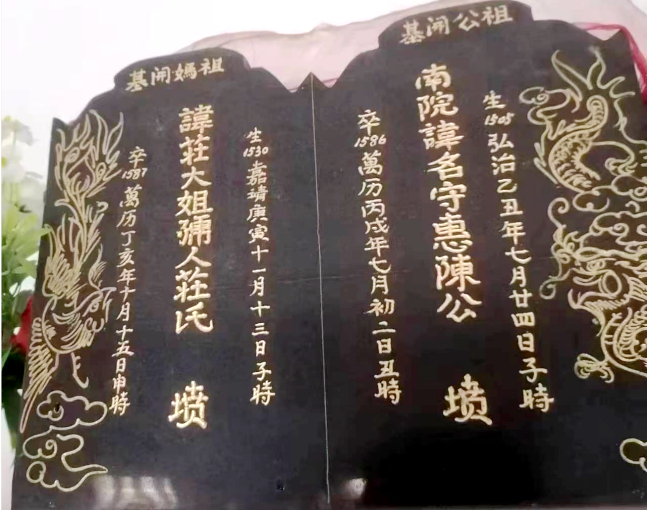 祖公開基
生1505弘治乙丑年七月廿四日子時
南院諱名守惠陳公 墳
卒1586萬历丙戌年七月初二日丑時
祖媽開基
生1530嘉靖庚寅十一月十三日子時
諱莊大姐孺人莊氏 墳
卒1587萬历丁亥年十月十五日申時